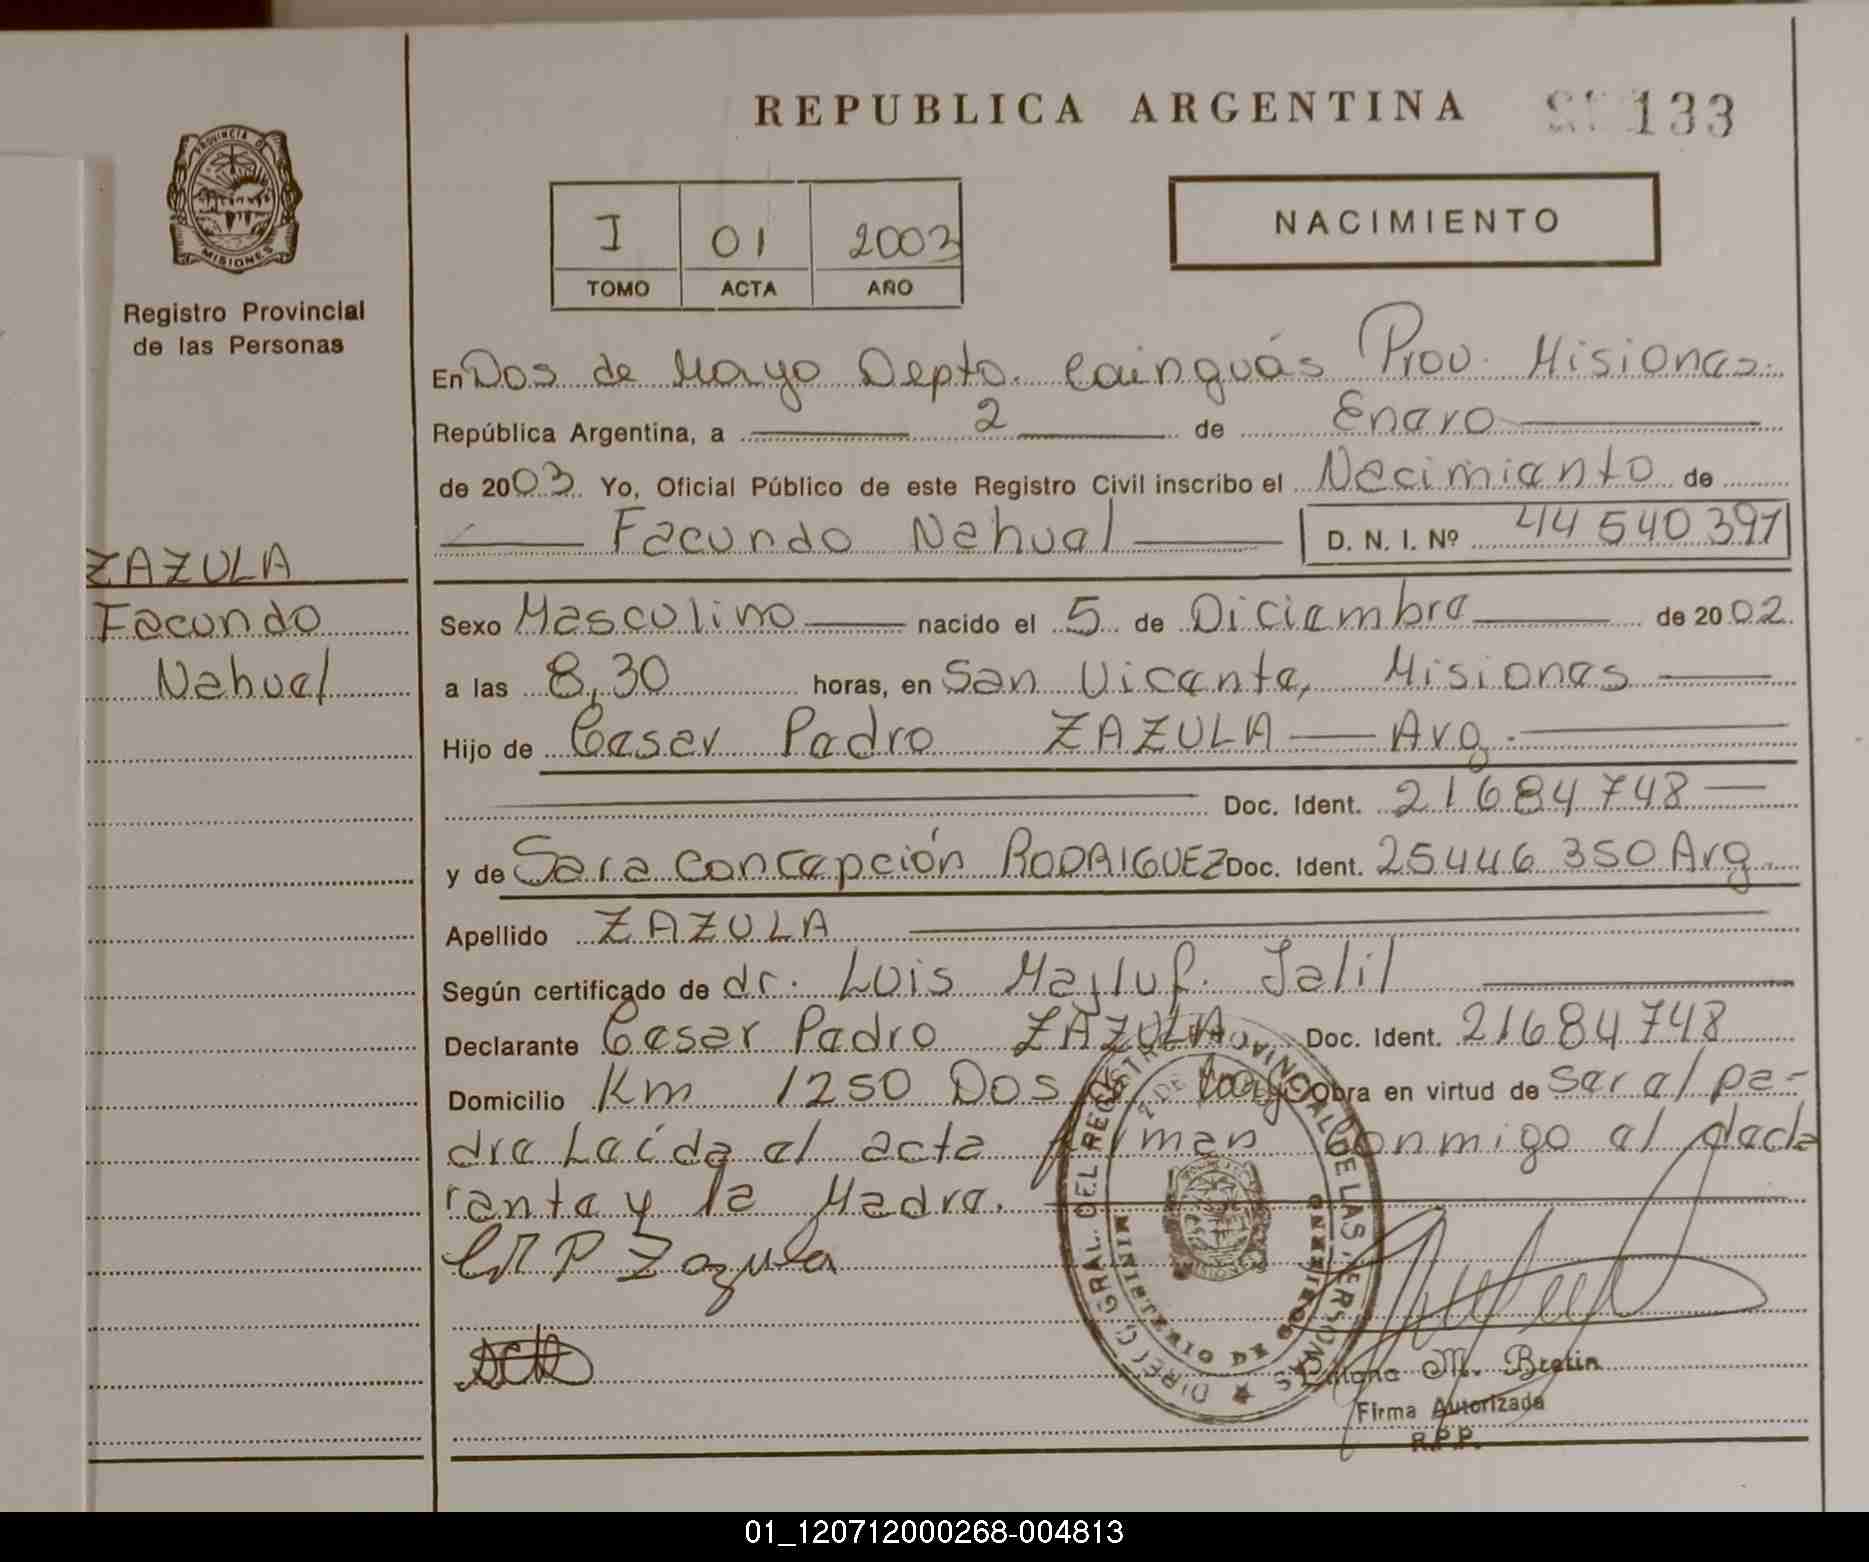 REPUBLICA ARGENTINA
133
PROVINCIA DE
MISIONES
Registro Provincial
de las Personas
I 01 2003
TOMO ACTA AÑO
NACIMIENTO
En Dos de Mayo Depto. Cainguás Prov. Misiones.
República Argentina, a 2 de Enero
de 2003 Yo, Oficial Público de este Registro Civil inscribo el Nacimiento de
Facundo Nahuel D. N. I. Nº 44 540 397
ZAZULA
Facundo
Nahuel
Sexo Masculino nacido el 5 de Diciembre de 2002.
a las 8,30 horas, en San Vicente, Misiones
Hijo de Cesar Pedro ZAZULA Arg.
Doc. Ident. 21684748
y de Sara Concepción RODRIGUEZ Doc. Ident. 25446 350 Arg.
Apellido ZAZULA
Según certificado de dr. Luis Majluf. Jalil
Declarante Cesar Pedro ZAZULA Doc. Ident. 21684748
Domicilio Km 1250 Dos de Mayo Obra en virtud de ser el pa-
dre Leída el acta firman conmigo el decla
rante y la Madre.
P Zazula
DIREC. GRAL. DEL REGISTRO PROVINCIAL DE LAS PERSONAS
MINISTERIO DE GOBIERNO
2 DE MAYO
M. Bretin
Firma Autorizada
R.P.P.
01_120712000268-004813